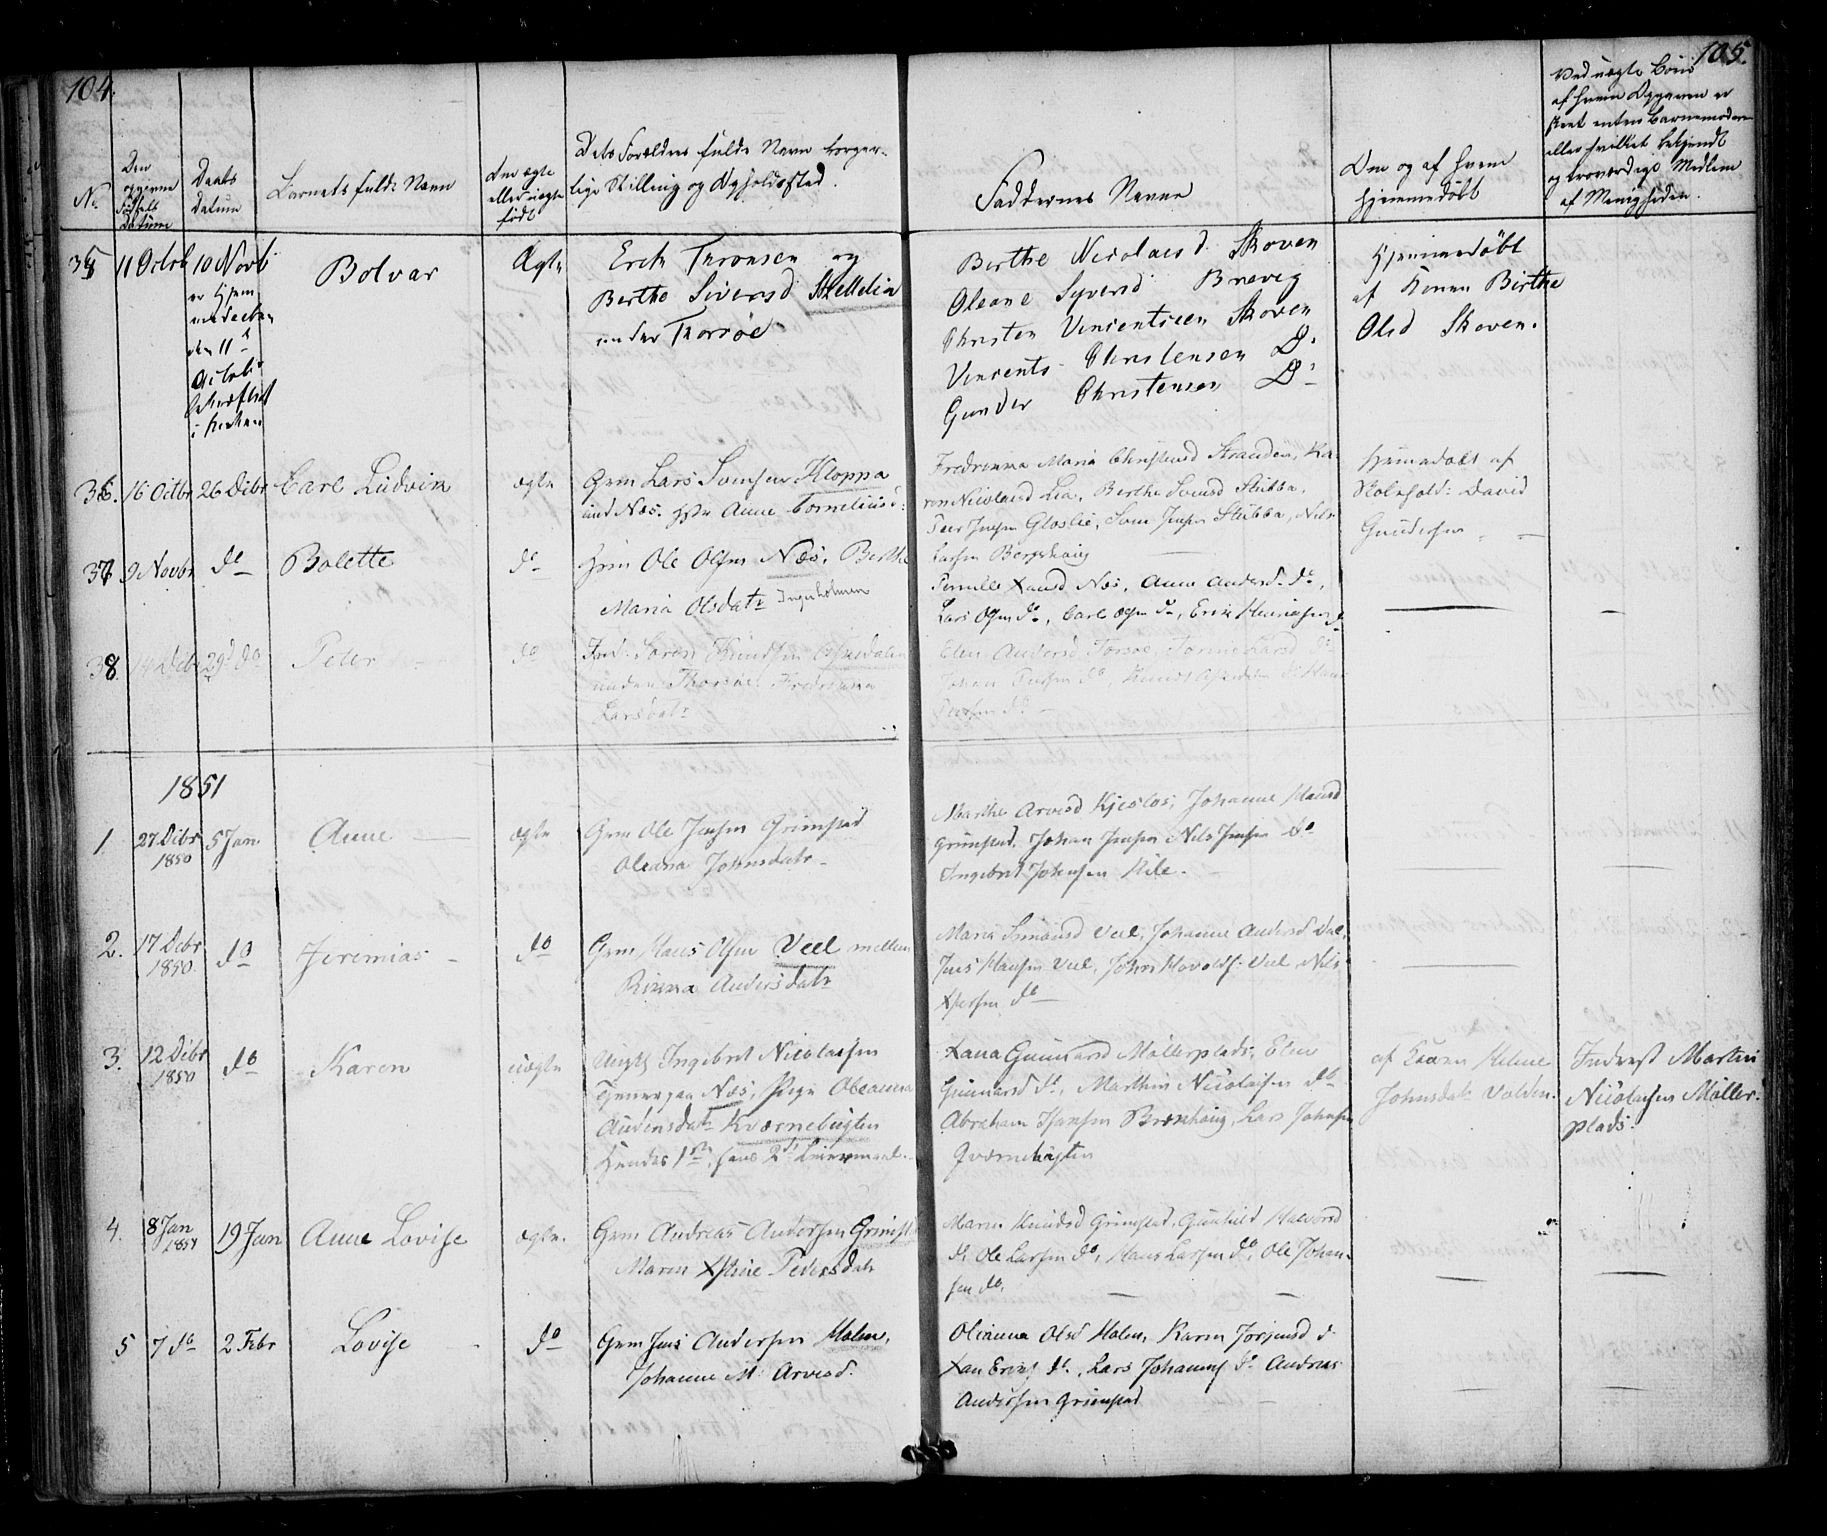 104.
105.
No
Den opgivne Fødsels Datum
Daabs datum
Barnets fulde Navn
Om ægte eller uægte født
Dets Forældres fulde Navn borger-
lige Stilling og Opholdssted.
Faddernes Navne
Om og af hvem
hjemmedøbt
Ved uægte Børn
af hvem Opgaven er
skeet enten Barnemoderen
eller hvilket bekjendt
og troværdigt Medlem
af Menigheden.
35 11 Octob 10 Novb Bolvar Ægte Erik Thronsen og
Berthe Siversd Skellelia
under Thorsøe
er hjem
den 11te
Octob
i Kirken
Berthe Nicolaisd. Skoven
Oleane Syversd Brevig
Christen Vincentseen Skoven
Vincents Christensen Do
Gunder Christensen Do
Hjemmedøbt
af Konen Birthe
Olsd Skoven.
36. 16 Octbr 26 Dcbr Carl Ludvin ægte Gm Lars Svensen Kloppa
und Næs. Hstr Anne Corneliusd:
Fredrinna Maria Christensd Stranden, Ka-
ren Nicolaisd Lia, Berthe Svensd Stubba,
Peer Jensen Gloslie, Sven Jensen Stubba, Nils
Larsen Berghaug
Hjemmedøbt af
Skolehold: David
Gundersen
37 9 Novbr do Bolette do Hmd Ole Olsen Næs, Berthe
Maria Olsdatr Ingerholmen
Pernille Xansd Næs, Anne Andersd. do,
Lars Olsen do, Carl Olsen do, Erik Henrichsen do
38 14 Dcb 29d do Peter do Ind. Søren Knudsen Askedalen
under Thorsøe. Fredrinna
Larsdatr
Elen Andersd Torsøe, Torine Larsd do
Johan Jensen do, Knud Askedalen do Hans
do
1851
1. 27 Dcbr 1850 5 Jan Anne ægte Gm Ole Jensen Grimstad
Oleana Johnsdatr
Marthe Arvesd Kjeslos, Johanne Hansd
Grimstad, Johan Jensen Nils Jensen do
Ingebret Johnsen Kile.
2. 17 Dcbr 1850 do Jeremias do Gm Hans Olsen Veel mellem
Rinna Andersdatr
Maria Simonsd Veel, Johanne Andersd Veel,
Jens Hansen Veel, John Hovoldf. Veel Nils
Xstensen do
3. 12 Dcbr 1850 do Karen uægte Ungk Ingebret Nicolaisen
Tjener paa Næs, Pige Oleanna
Audensdatr Kværnebugten
Hendes 1ste, hans 2det Leiermaal.
Xana Gunnarsd Møllerplads, Elen
Gunnarsd do, Marthin Nicolaisen do
Abraham Hansen Brænhaug, Lars Johnsen
Qværnebugten
af Karen Helene
Johnsdatr Valden.
Inderst Martin
Nicolaisen Møller-
plads.
4. 8 Jan 1851 19 Jan Anne Lovise ægte. Gm Andreas Andersen Grimst
Maren Xstine Pedersdatr
Maren Knudsd Grimstad, Gunhild Halvorsd
do Ole Larsen do, Hans Larsen do, Ole Johan-
sen do.
5 7 do 2 Febr Lovise do Gm Jens Andersen Holen,
Johanne M: Arvesd.
Olianna Olsd Holen, Karen Jørgensd do
Xan Erichs do., Lars Johanns do Andreas
Andersen Grimstad